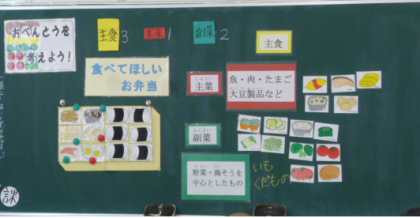 おべんとうを
考えよう!
主食 3
主菜 1
副菜 2
食べてほしい
お弁当
主食
主菜
魚・肉・たまご
大豆製品など
副菜
野菜・海そうを
中心としたもの
いも
くだもの